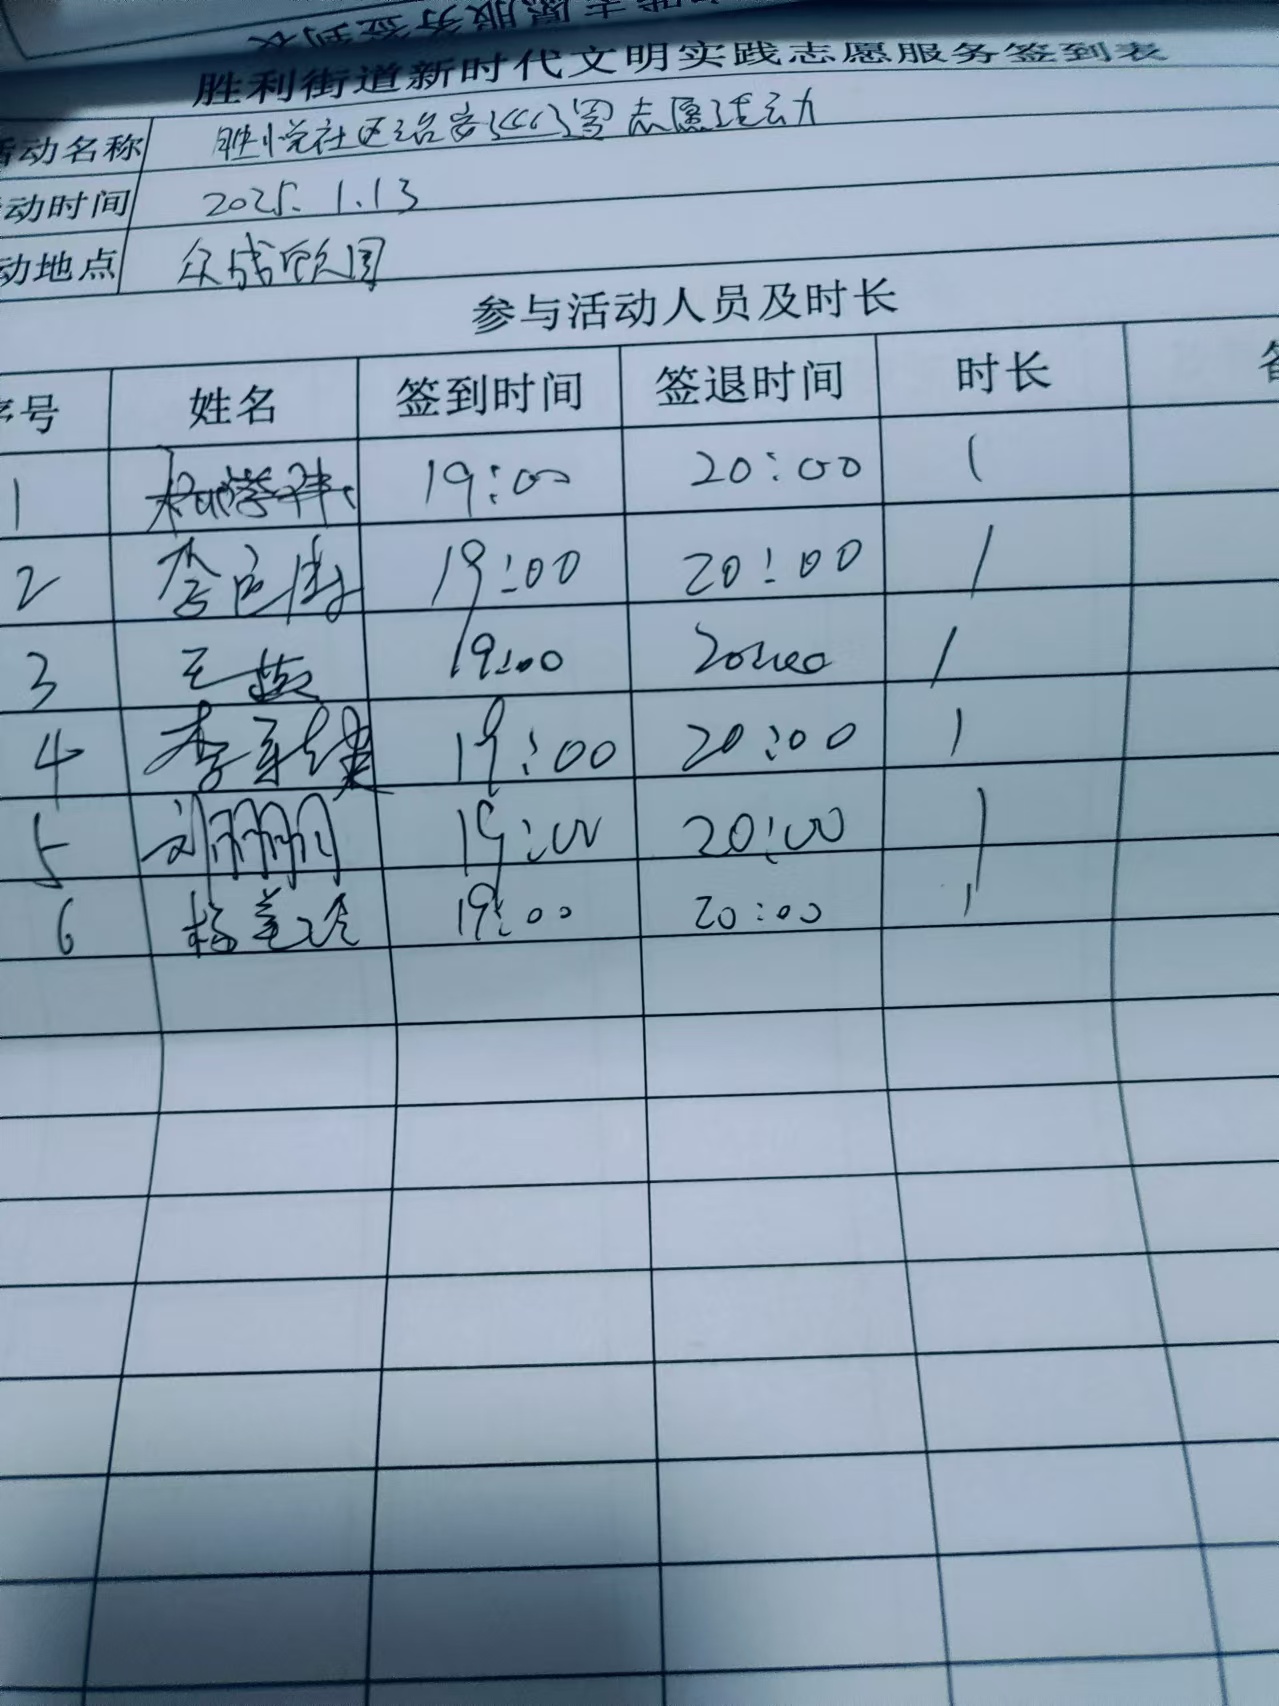 胜利街道新时代文明实践志愿服务签到表
活动名称 胜悦社区治安巡逻志愿活动
动时间 2025.1.13
动地点 众成颐园
参与活动人员及时长
序号 姓名 签到时间 签退时间 时长
1 19:00 20:00 1
2 李 19:00 20:00 1
3 王 19:00 20:00 1
4 李 19:00 20:00 1
5 刘 19:00 20:00 1
6 杨 19:00 20:00 1